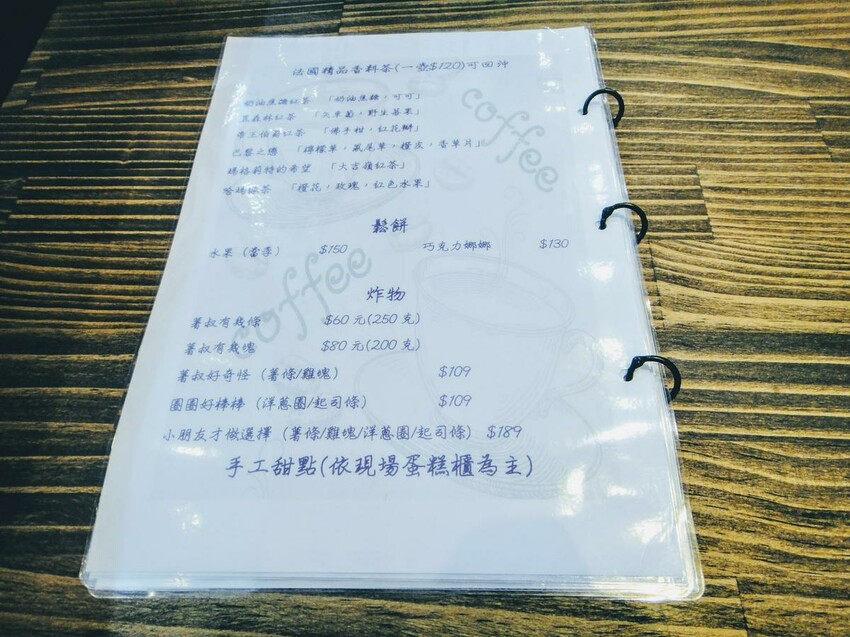 法國精品香料茶(一壺$120)可回沖
奶油焦糖紅茶 「奶油焦糖,可可」
黑森林紅茶 「天草莓,野生莓果」
帝王伯爵紅茶 「佛手柑,紅花瓣」
巴黎之鷹 「檸檬草,鼠尾草,橙皮,香草片」
瑪格莉特的希望 「大吉嶺紅茶」
哈瑪綠茶 「橙花,玫瑰,紅色水果」
coffee
鬆餅
水果(當季) $150 巧克力娜娜 $130
coffee
炸物
薯叔有幾條 $60元(250克)
薯叔有幾塊 $80元(200克)
薯叔好奇怪(薯條/雞塊) $109
圈圈好棒棒(洋蔥圈/起司條) $109
小朋友才做選擇(薯條/雞塊/洋蔥圈/起司條) $189
手工甜點(依現場蛋糕櫃為主)